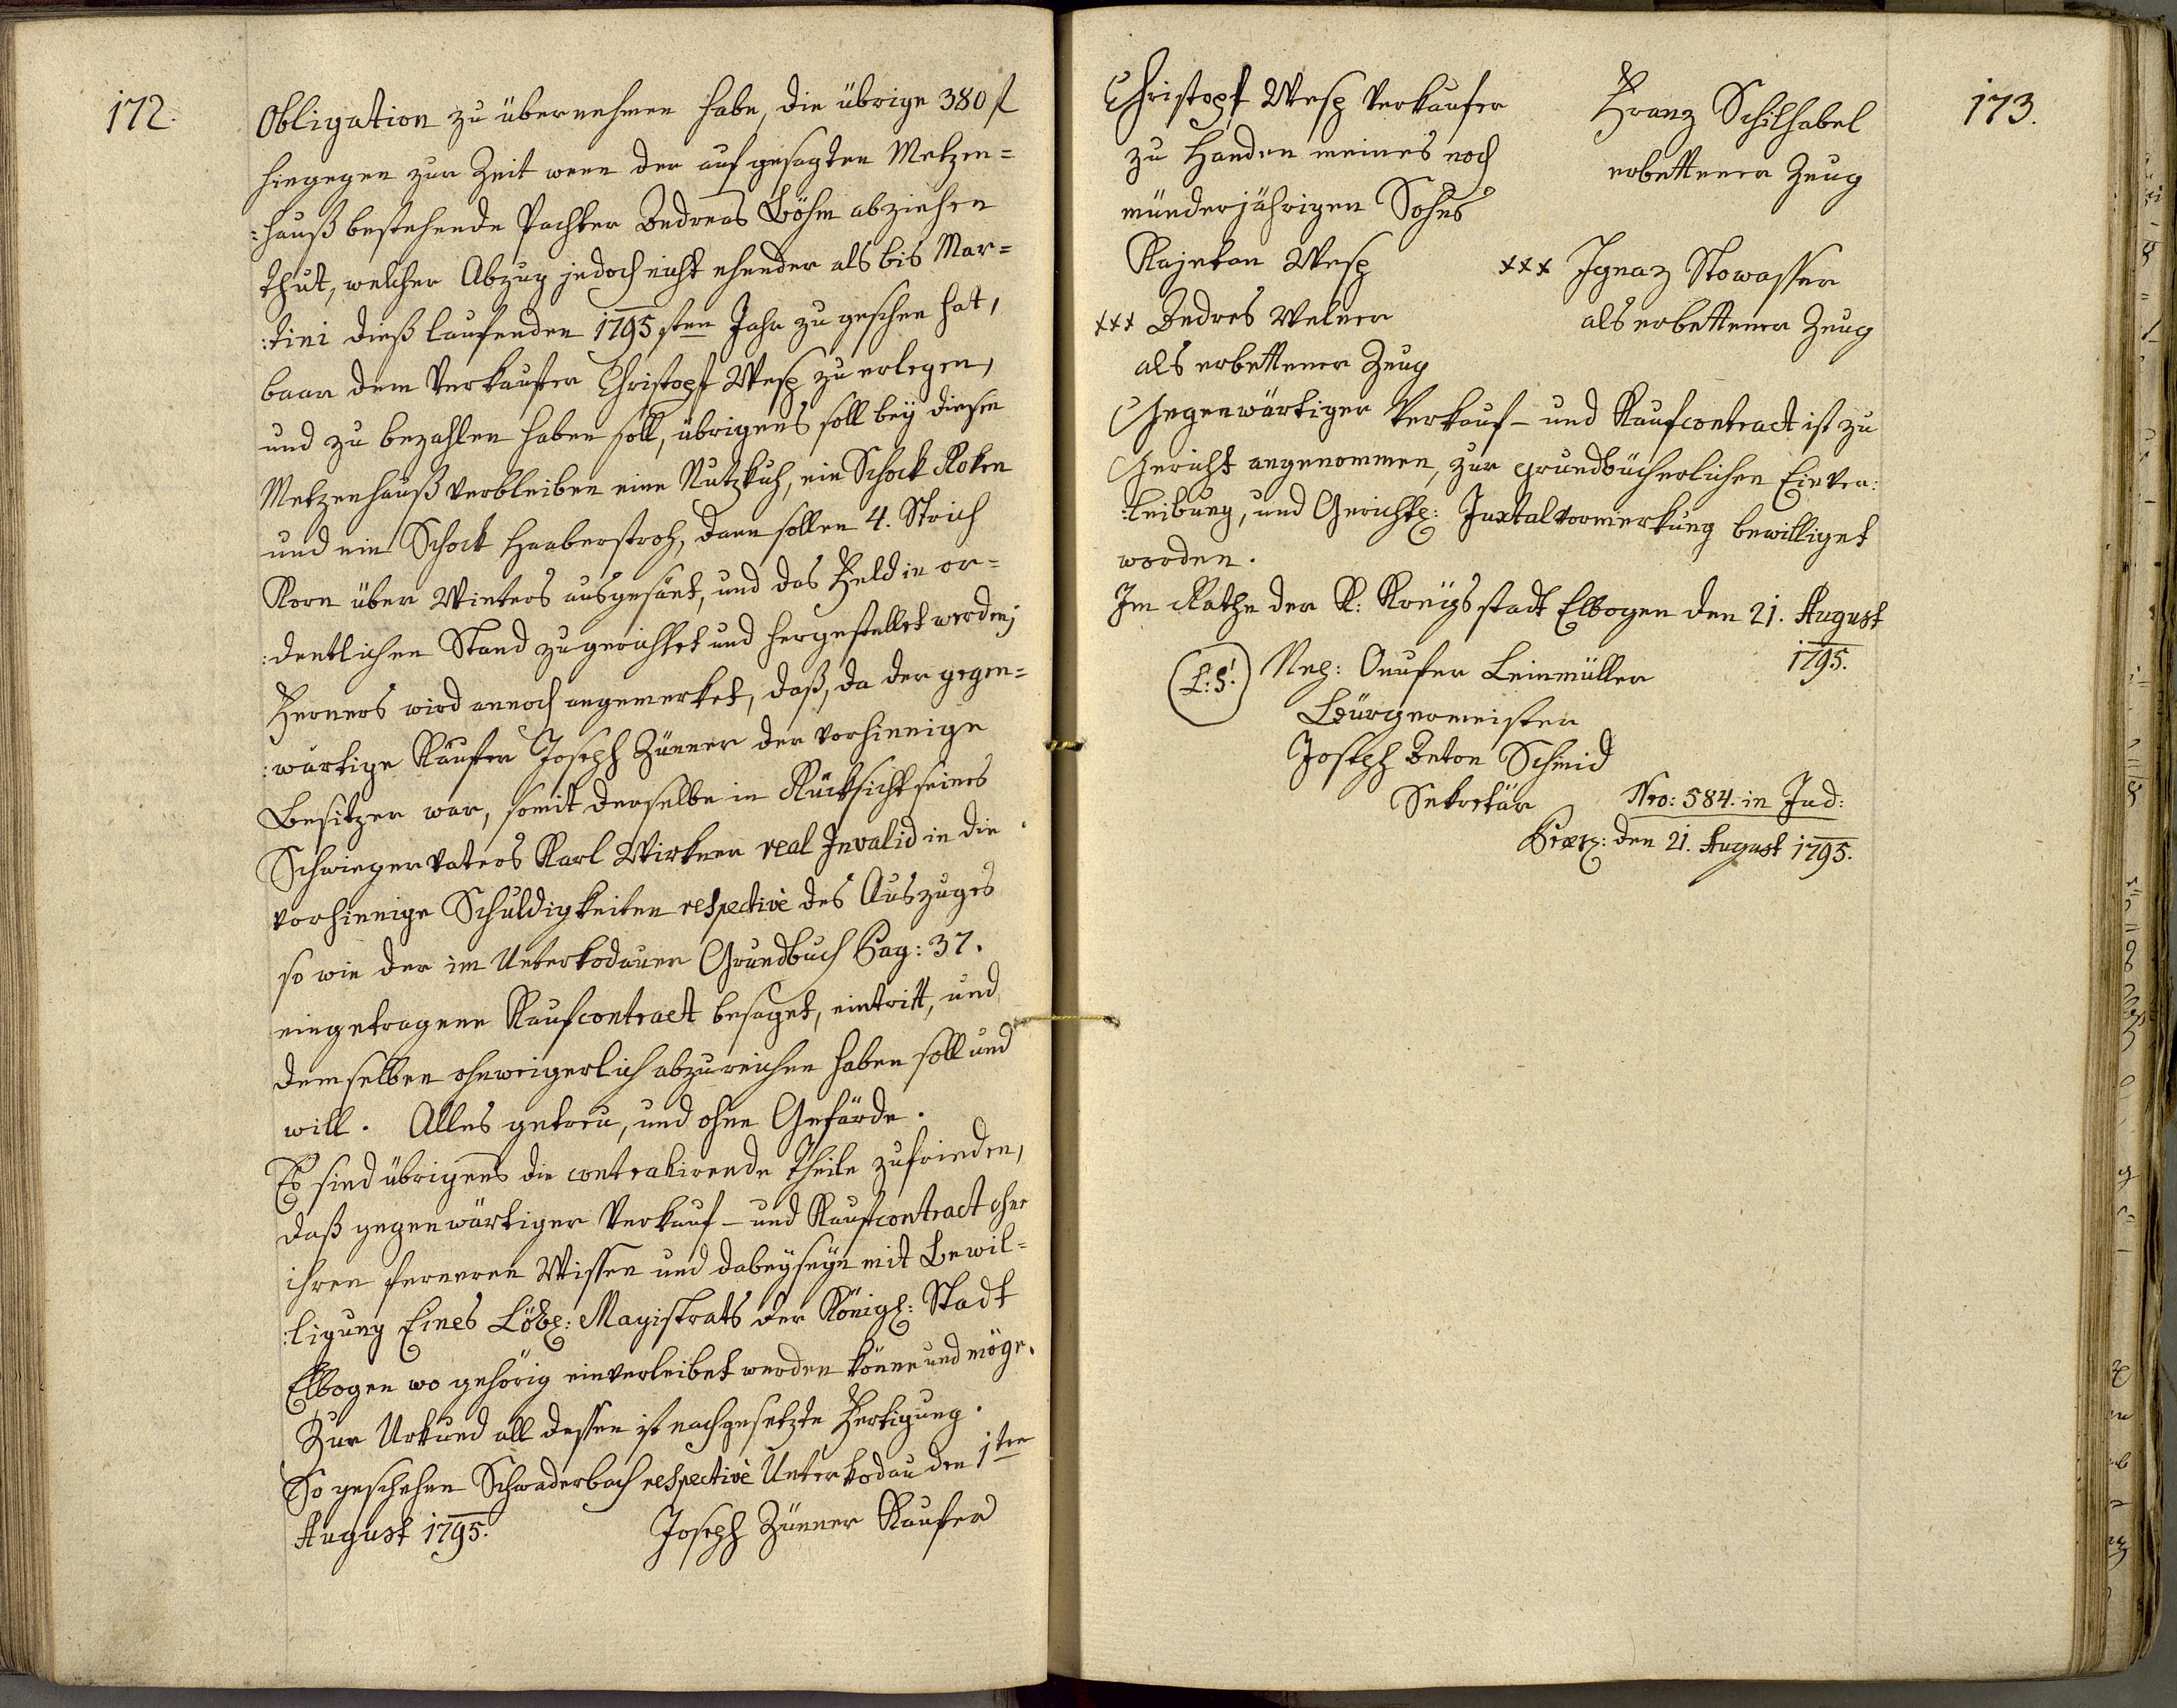 172.
Obligation zu übernehmen habe, die übrige 380 f
hingegen zur Zeit wenn der auf gesagten Metzen=
:hauß bestehende Pachter Andreas Böhm abziehen
thut, welcher Abzug jedoch nicht ehender als bis Mar=
:tini dieß laufenden 1795sten Jahr zu geschen hat,
baar dem Verkaufer Christoph Wesp zu erlegen,
und zu bezahlen haben soll, übrigens soll bey diesen
Metzenhauß verbleiben eine Nutzkuh, ein Schock Roken
und ein Schock Haaberstroh, dann sollen 4. Strich
Korn über Winters ausgesäet, und das Feld in or=
:dentlichen Stand zugerichtet und hergestellet werden;
Ferners wird annoch angemerket, daß, da der gegen=
:wärtige Käufer Joseph Zünner der vorhinnige
Besitzer war, somit derselbe in Rücksicht seines
Schwiegervaters Karl Wirkner real Invalid in die
vorhinnige Schuldigkeiten respectivè des Auszuges
so wie der im Unterkodauer Grundbuch Pag: 37.
eingetragene Kaufcontract besaget, eintritt, und
demselben ohnweigerlich abzureichen haben soll und
will. Alles getreu, und ohne Gefärde.
Es sind übrigens die contrahirende Theile zufrieden,
daß gegenwärtiger Verkauf- und Kaufcontract ohne
ihren ferneren Wissen und dabeyseyn mit Bewil=
:ligung Eines Löbl: Magistrats der Königl: Stadt
Elbogen wo gehörig einverleibet werden könne und möge.
Zur Urkund all dessen ist nachgesetzte Fertigung.
So geschehen Schwaderbach respectivè Unterkodau den 1ten
August 1795. Joseph Zünner Kaufer
173.
Christoph Wesp Verkaufer
zu Handen meines noch
münderjährigen Sohns
Kajetan Wesp
+++ Andres Welner
als erbettener Zeug
Franz Schilhabel
erbettener Zeug
+++ Ignaz Stowasser
als erbettener Zeug
Gegenwärtiger Verkauf- und Kaufcontract ist zu
Gericht angenommen, zur grundbücherlichen Einver:
:leibung, und Gerichtl: Juxtalvormerkung bewilliget
worden.
Im Rathe der K: Kreisstadt Elbogen den 21. August
1795.
(L:S:) Onufer Leinmüller
Bürgermeister
Joseph Anton Schmid
Sekretär
Nro: 584. in Jud:
den 21. August 1795.